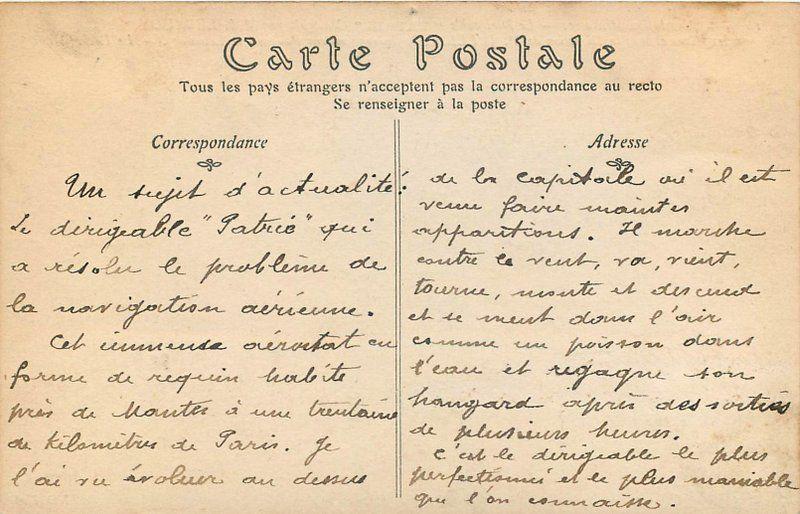 Carte Postale
Tous les pays étrangers n'acceptent pas la correspondance au recto
Se renseigner à la poste
Correspondance
Un sujet d'actualité :
Le dirigeable "Patrie" qui
a résolu le problème de
la navigation aérienne.
Cet immense aérostat en
forme de requin habite
près de Mantes à une trentaine
de kilomètres de Paris. Je
l'ai vu évoluer au dessus
Adresse
de la capitale où il est
venu faire maintes
apparitions. Il marche
contre le vent, va, vient,
tourne, monte et descend
et se meut dans l'air
comme un poisson dans
l'eau et regagne son
hangard après des sorties
de plusieurs heures.
C'est le dirigeable le plus
perfectionné et le plus maniable
que l'on connaisse.